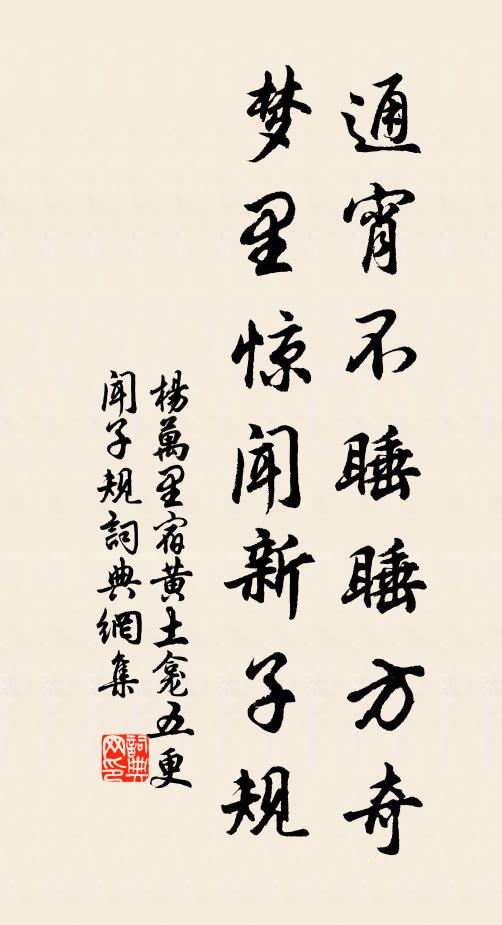 通宵不睡睡方奇
梦里惊闻新子规
楊萬里宿黃土龕五更
聞子規詞典網集
詞典
网印